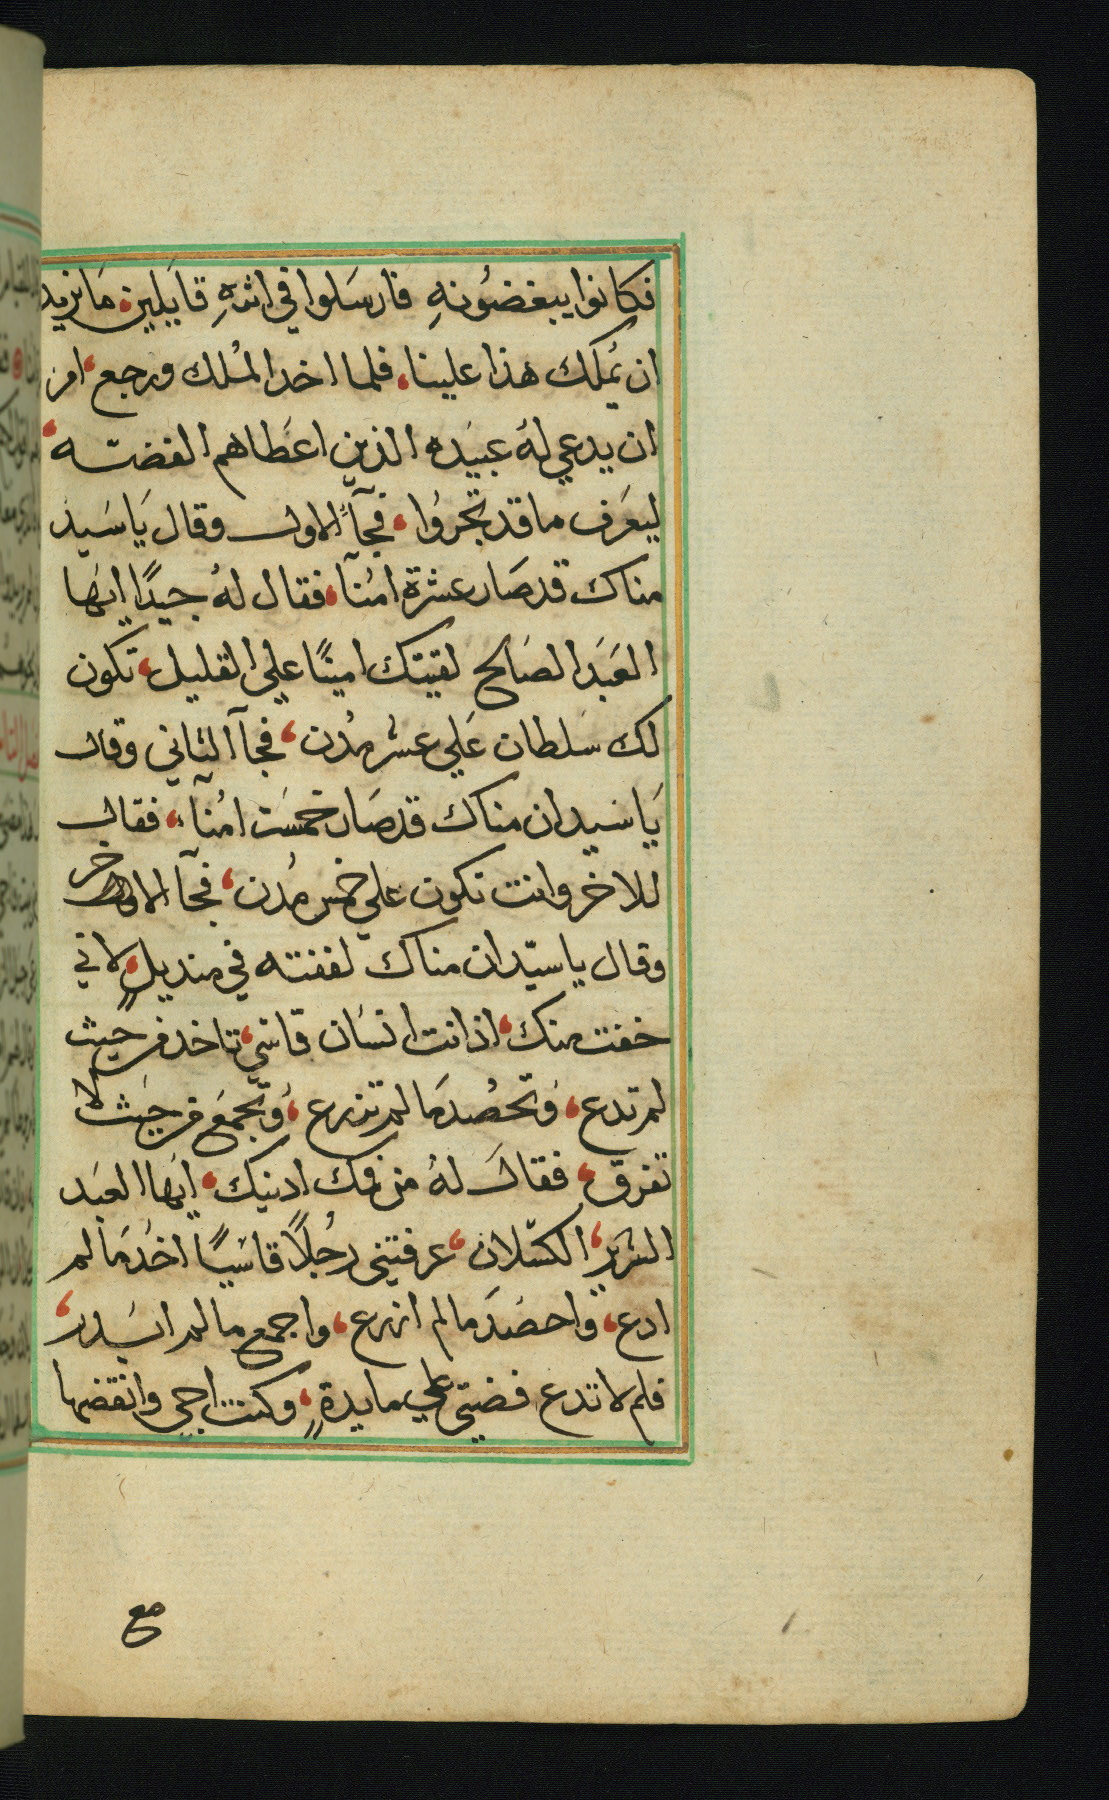 فكانوا يبغضُونهِ فارسَلوا في اثرهِ قايَلين، مَا نريد
ان يُملك هذا علينا، فلما اخد المُلك ورجع، امر
ان يدعي لهُ عبيَده الذين اعَطاهم الفضّه،
ليعَرف ما قد تجروُا، فجآءَ الاول وقال يَا سَيد
مناك قد صَار عشرة امُنآ، فقال لهُ جيدًا ايهَا
العَبَد الصَالح لقيتك امينًا علي القليل، تكون
لك سَلطان عَلي عشر مُدن، فجآ الثاني وقال
يَا سيد ان مناك قد صَار خمسَت امُنآء، فقال
للاخر وانت تكون علي خمس مُدن، فجآ الاخر
وقال يا سيّد ان مناك لففته في منديلٍ، لاني
خفت منك، اذ انت انسَان قاسي، تاخد من حيث
لم تدع، وَتحصُد مَا لم تزرع، وَتجمَع من حيَث لا
تفرق، فقال لهُ من فمك ادينك، ايهَا العبَد
الشرير، الكسّلان، عرفتيني رجُلاً قاسَيًا اخُد مَا لم
ادع، وَاحصَد مَا لم ازرع، واجمع ما لم ابَدر،
فلم لا تدع فضتي علي مايدةٍ، وكنت اجي واتقضها
مع